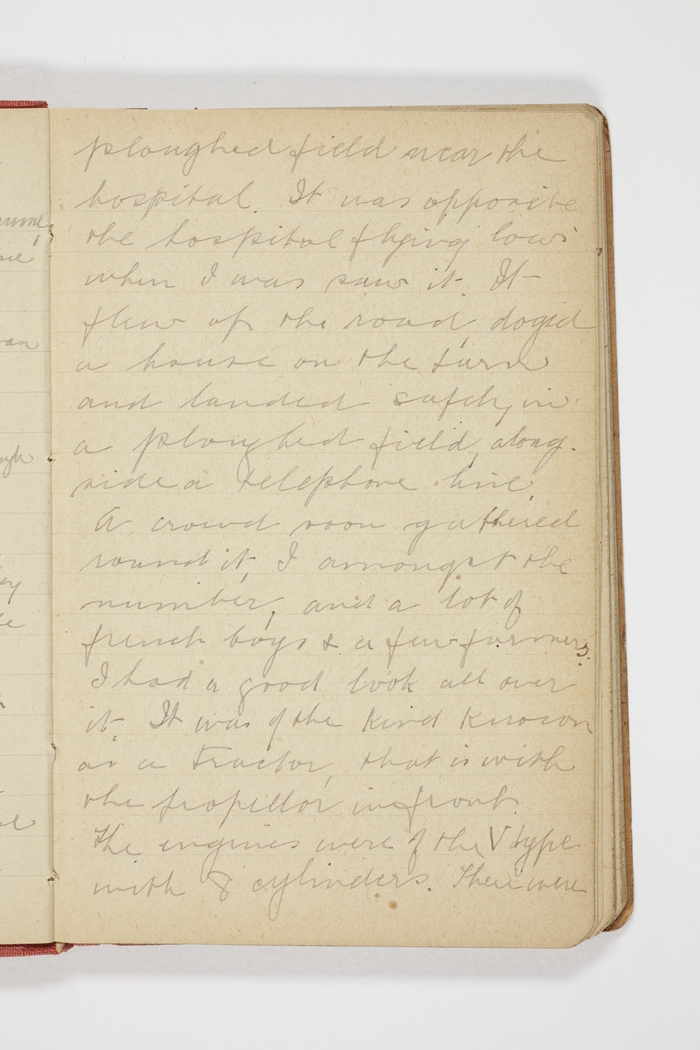 ploughed field near the
hospital. It was opposite
the hospital flying low
when I was saw it. It
flew up the road, dogid
a house on the turn
and landed safely, in
a ploughed field, along-
side a telephone line.
A crowd soon gathered
round it, I amongst the
number, and a lot of
french boys & a few farmers.
I had a good look all over
it. It was of the kind known
as a tractor, that is with
the propellor in front.
The engines were of the V type
with 8 cylinders. There were